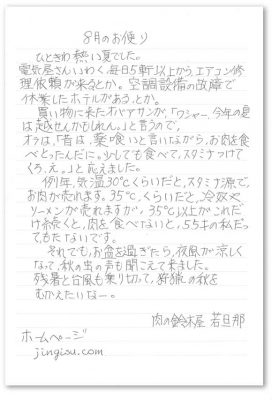 8月のお便り
ひときわ熱い夏でした。
電気屋さんいわく、毎日5軒以上から、エアコン修
理依頼が来るとか。空調設備の故障で
休業したホテルがある、とか。
買い物に来たオバアサンが、「ワシャー、今年の夏
は越せんかもしれん。」と言うので、
オラは、「昔は、薬喰いと言いながら、お肉を食
べとったんだに。少しでも食べて、スタミナつけて
くろ。え。」と応えました。
例年、気温30℃くらいだと、スタミナ源で、
お肉が売れます。35℃、くらいだと、冷奴や
ソーメンが売れますが、35℃以上がこれだ
け続くと、肉を食べないと、55才の私だっ
てもたないです。
それでも、お盆を過ぎたら、夜風が涼しく
なって、秋の虫の声も聞こえて来ました。
残暑と台風も乗り切って、狩猟の秋を
むかえたいなー。
肉の鈴木屋 若旦那
ホームページ
jingisu.com